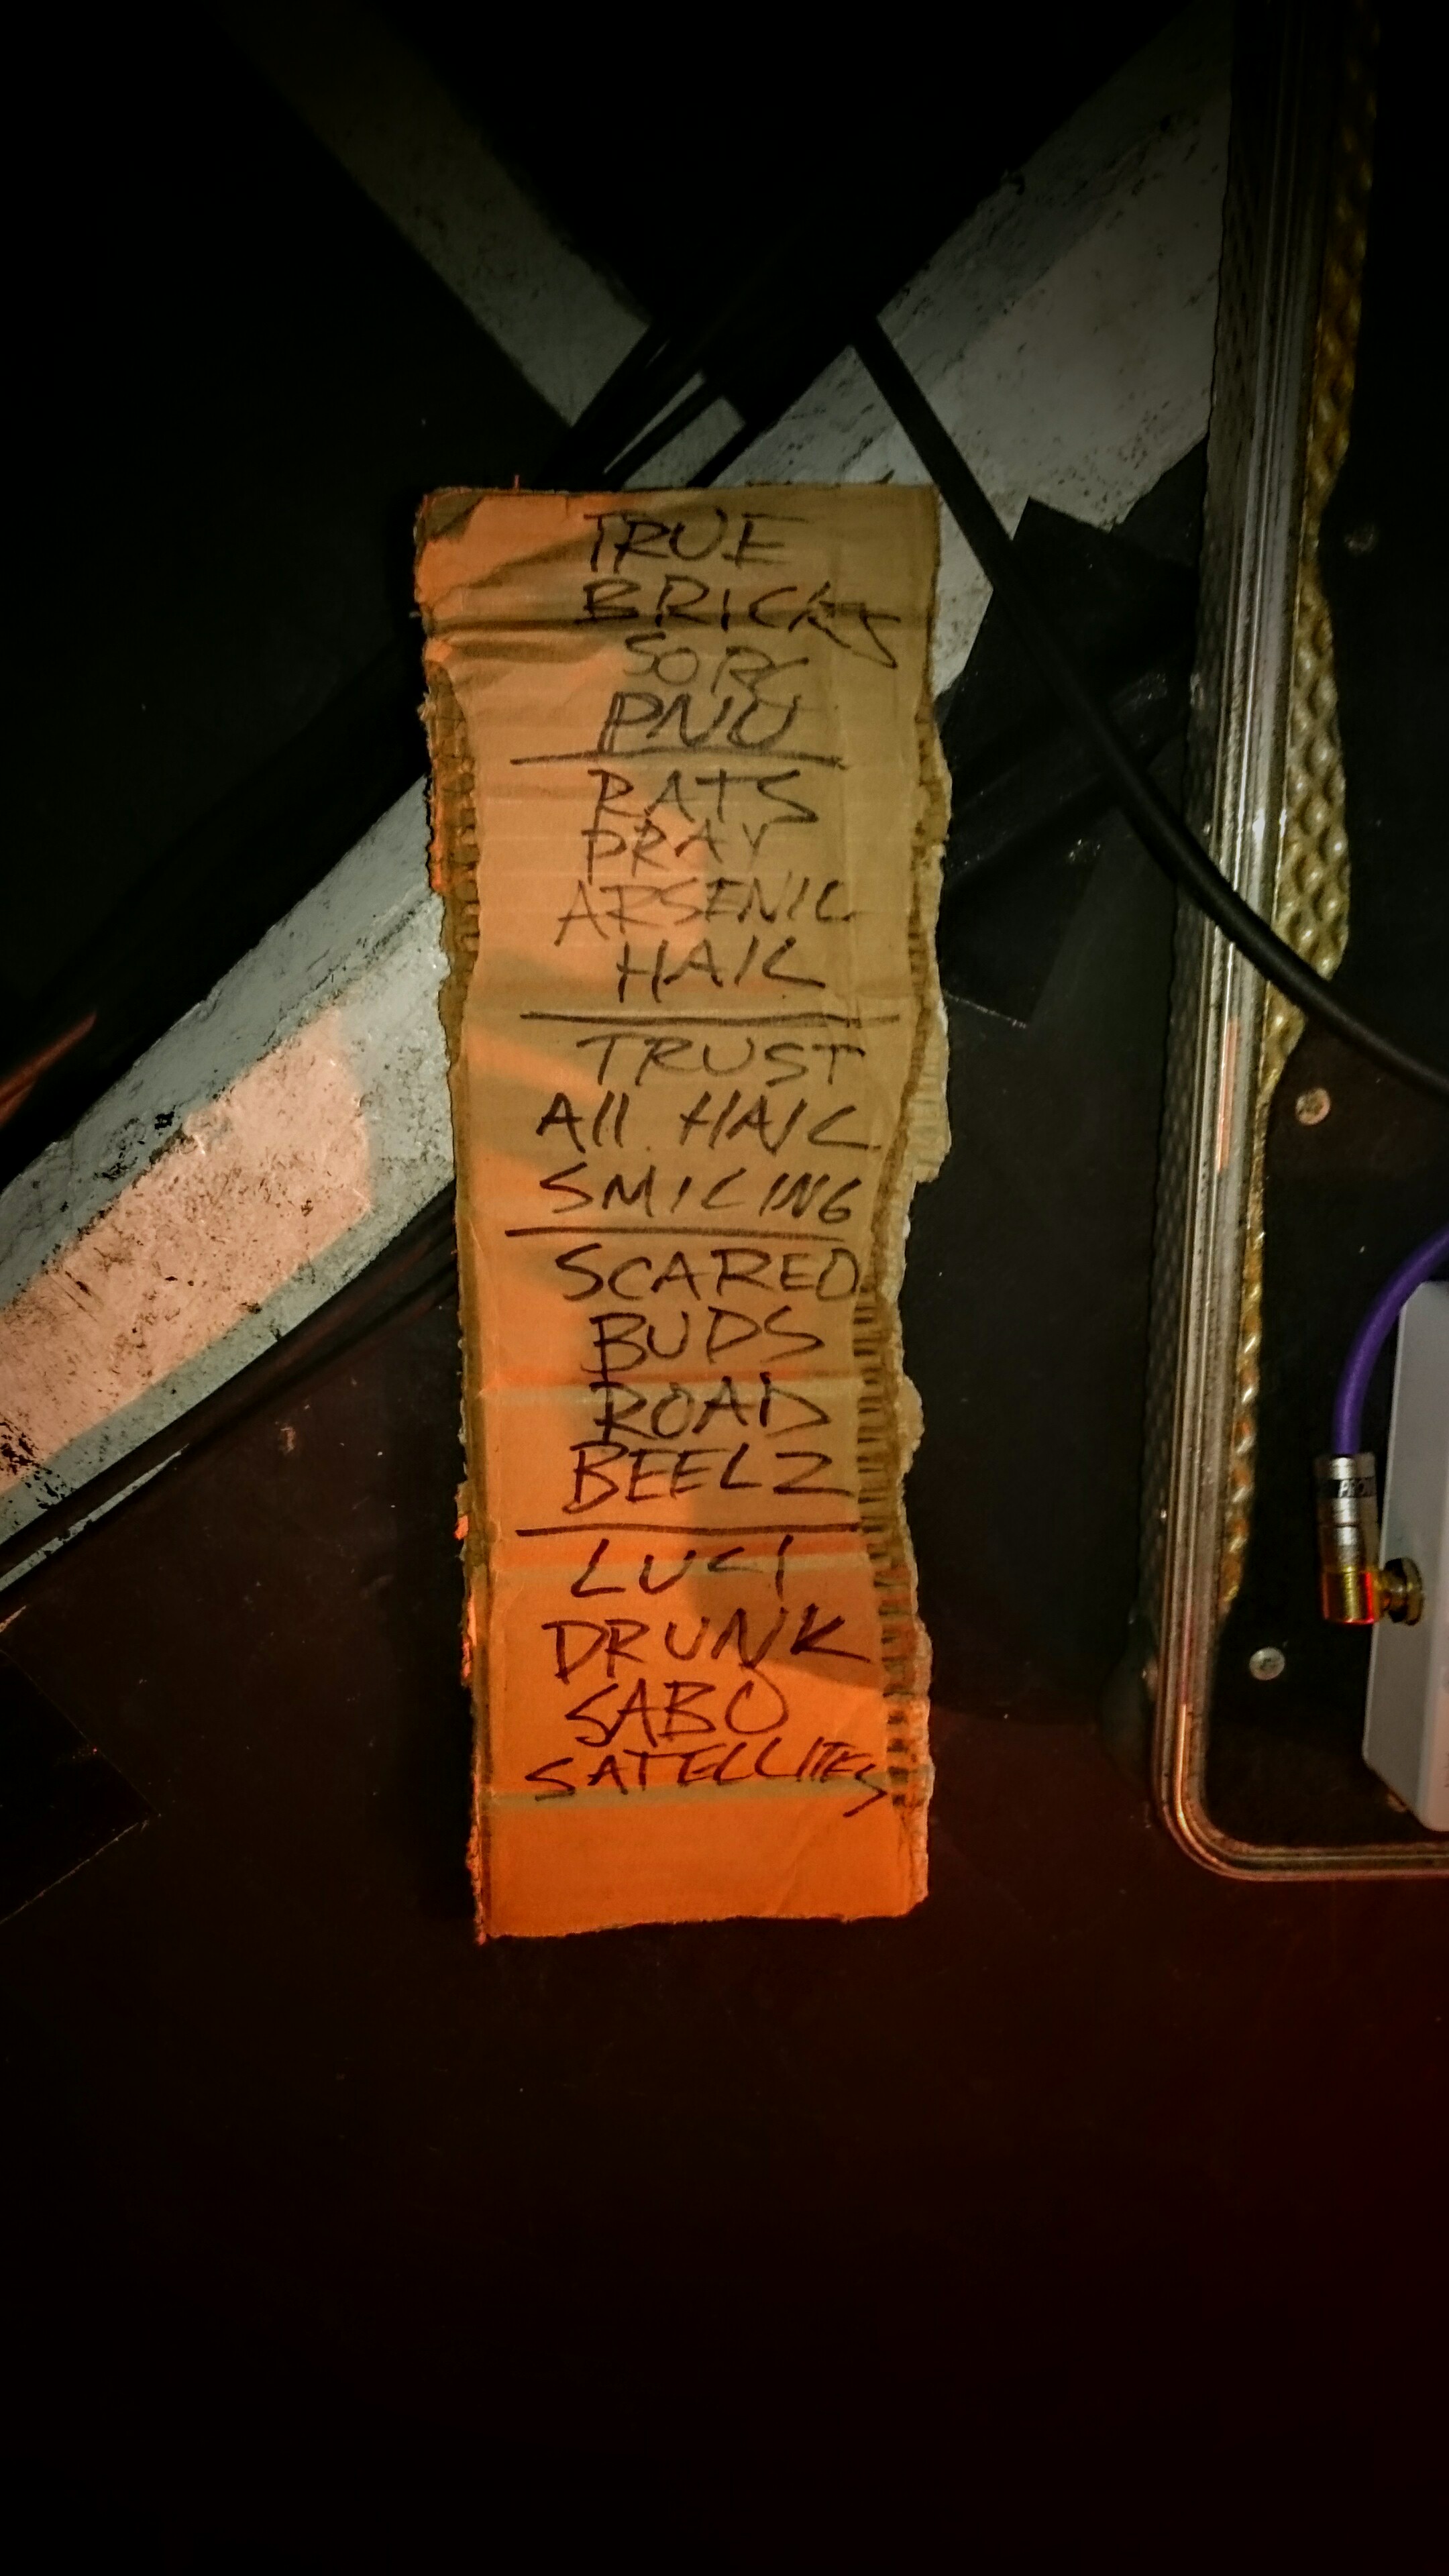 TRUE
BRICKS
SORC
PNU
RATS
PRAY
ARSENIC
HAIL
TRUST
All HAIL
SMILING
SCARED
BUDS
ROAD
BEELZ
LUCI
DRUNK
SABO
SATELLITES